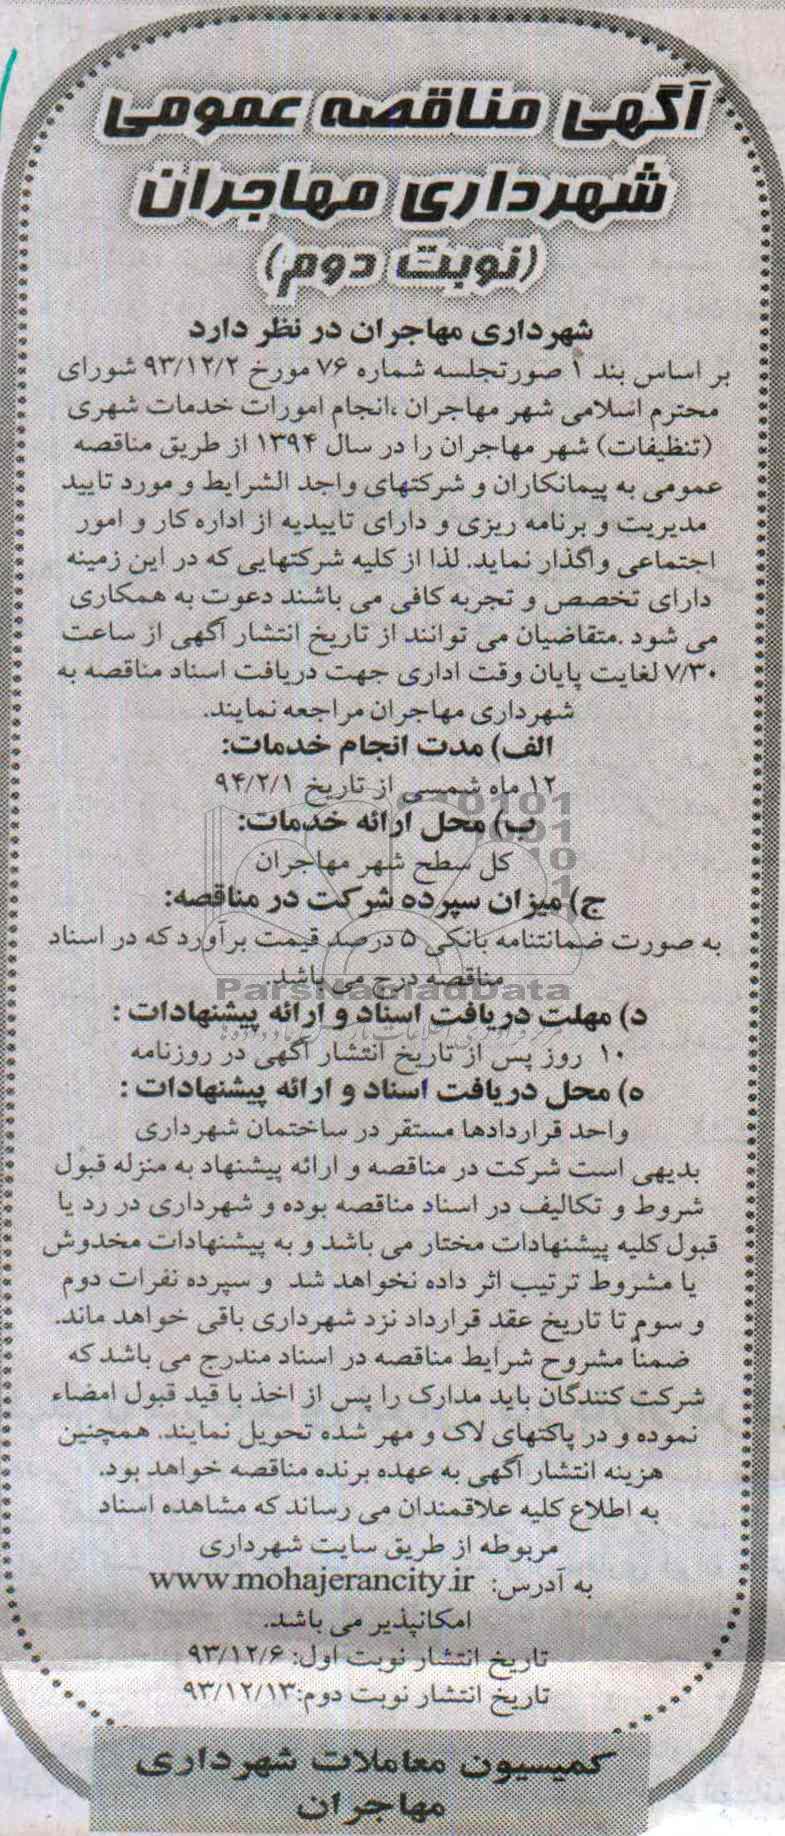 آگهی مناقصه عمومی
شهرداری مهاجران
(نوبت دوم)
شهرداری مهاجران در نظر دارد
بر اساس بند ۱ صورتجلسه شماره ۷۶ مورخ ۹۳/۱۲/۲ شورای
محترم اسلامی شهر مهاجران ،انجام امورات خدمات شهری
(تنظیفات) شهر مهاجران را در سال ۱۳۹۴ از طریق مناقصه
عمومی به پیمانکاران و شرکتهای واجد الشرایط و مورد تایید
مدیریت و برنامه ریزی و دارای تاییدیه از اداره کار و امور
اجتماعی واگذار نماید. لذا از کلیه شرکتهایی که در این زمینه
دارای تخصص و تجربه کافی می باشند دعوت به همکاری
می شود .متقاضیان می توانند از تاریخ انتشار آگهی از ساعت
۷/۳۰ لغایت پایان وقت اداری جهت دریافت اسناد مناقصه به
شهرداری مهاجران مراجعه نمایند.
الف) مدت انجام خدمات:
۱۲ ماه شمسی از تاریخ ۹۴/۲/۱
ب) محل ارائه خدمات:
کل سطح شهر مهاجران
ج) میزان سپرده شرکت در مناقصه:
به صورت ضمانتنامه بانکی ۵ درصد قیمت برآورد که در اسناد
مناقصه درج می باشد.
ParsNamadData
د) مهلت دریافت اسناد و ارائه پیشنهادات :
۱۰ روز پس از تاریخ انتشار آگهی در روزنامه
ه) محل دریافت اسناد و ارائه پیشنهادات :
واحد قراردادها مستقر در ساختمان شهرداری
بدیهی است شرکت در مناقصه و ارائه پیشنهاد به منزله قبول
شروط و تکالیف در اسناد مناقصه بوده و شهرداری در رد یا
قبول کلیه پیشنهادات مختار می باشد و به پیشنهادات مخدوش
یا مشروط ترتیب اثر داده نخواهد شد و سپرده نفرات دوم
و سوم تا تاریخ عقد قرارداد نزد شهرداری باقی خواهد ماند.
ضمناً مشروح شرایط مناقصه در اسناد مندرج می باشد که
شرکت کنندگان باید مدارک را پس از اخذ با قید قبول امضاء
نموده و در پاکتهای لاک و مهر شده تحویل نمایند. همچنین
هزینه انتشار آگهی به عهده برنده مناقصه خواهد بود.
به اطلاع کلیه علاقمندان می رساند که مشاهده اسناد
مربوطه از طریق سایت شهرداری
به آدرس: www.mohajerancity.ir
امکانپذیر می باشد.
تاریخ انتشار نوبت اول: ۹۳/۱۲/۶
تاریخ انتشار نوبت دوم:۹۳/۱۲/۱۳
کمیسیون معاملات شهرداری
مهاجران